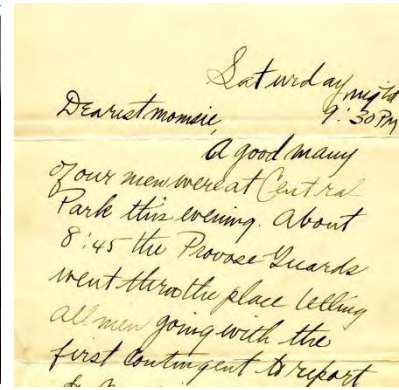 Saturday night
9:30 PM
Dearest momsie,
A good many
of our men were at Central
Park this evening. About
8:45 the Provose Guards
went thro the place telling
all men going with the
first contingent to report